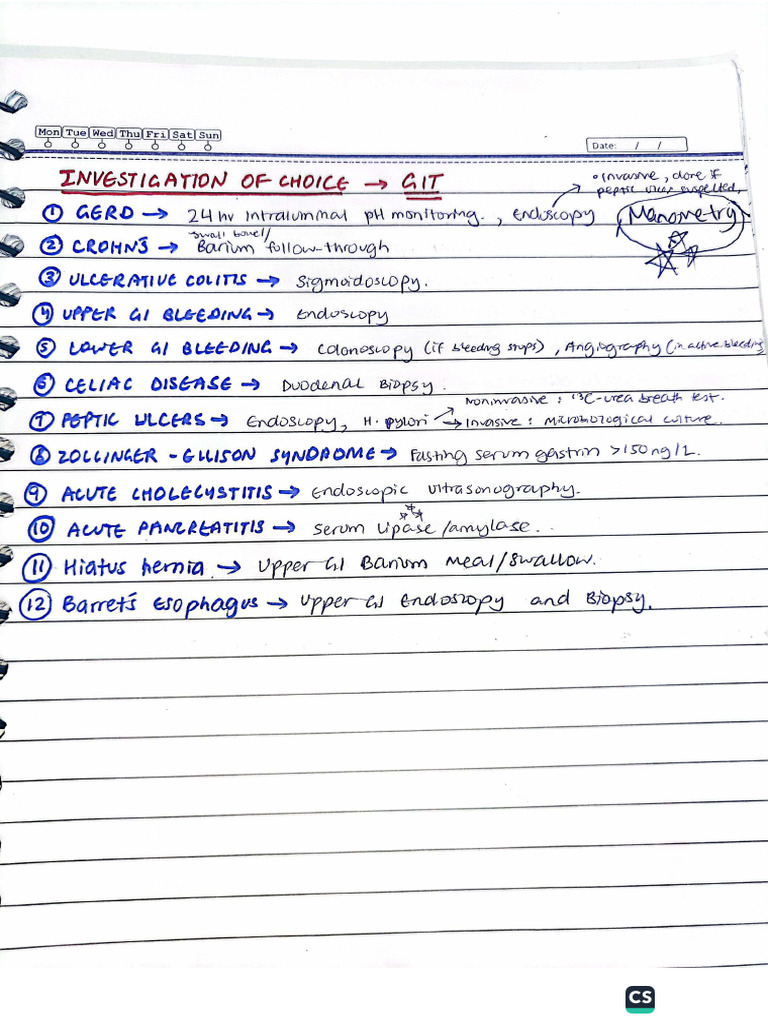 Mon Tue Wed Thu Fri Sat Sun
Date: / /
INVESTIGATION OF CHOICE → GIT
• Invasive, done if
peptic ulcer suspected,
① GERD → 24 hr intraluminal pH monitoring., Endoscopy
Manometry
small bowel/
② CROHN'S → Barium follow-through
③ ULCERATIVE COLITIS → Sigmoidoscopy.
④ UPPER GI BLEEDING → Endoscopy
⑤ LOWER GI BLEEDING → Colonoscopy (if bleeding stops), Angiography (in active bleeding
⑥ CELIAC DISEASE → Duodenal Biopsy.
Noninvasive : ¹³C-urea breath test.
⑦ PEPTIC ULCERS → Endoscopy, H. pylori → Invasive : Microbiological culture.
⑧ ZOLLINGER - ELLISON SYNDROME → Fasting serum gastrin >150 ng/L.
⑨ ACUTE CHOLECYSTITIS → Endoscopic Ultrasonography.
⑩ ACUTE PANCREATITIS → Serum Lipase/amylase..
⑪ Hiatus hernia. → Upper GI Barium Meal/Swallow.
⑫ Barret's Esophagus → Upper GI Endoscopy and Biopsy.
CS